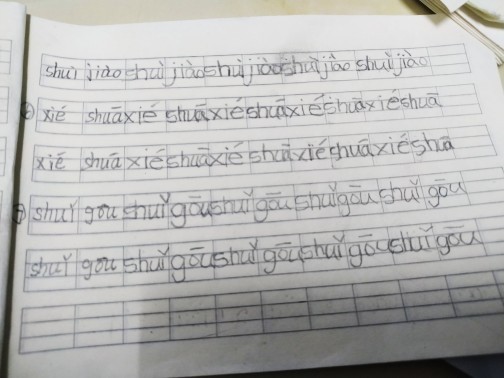 shuì jiào shuì jiào shuì jiào shuì jiào shuì jiào
xié shuā xié shuā xié shuā xié shuā xié shuā
xié shuā xié shuā xié shuā xié shuā xié shuā
shuǐ gōu shuǐ gōu shuǐ gōu shuǐ gōu shuǐ gōu
shuǐ gōu shuǐ gōu shuǐ gōu shuǐ gōu shuǐ gōu